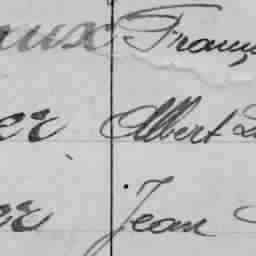 aux Franç
er Albert
er Jean